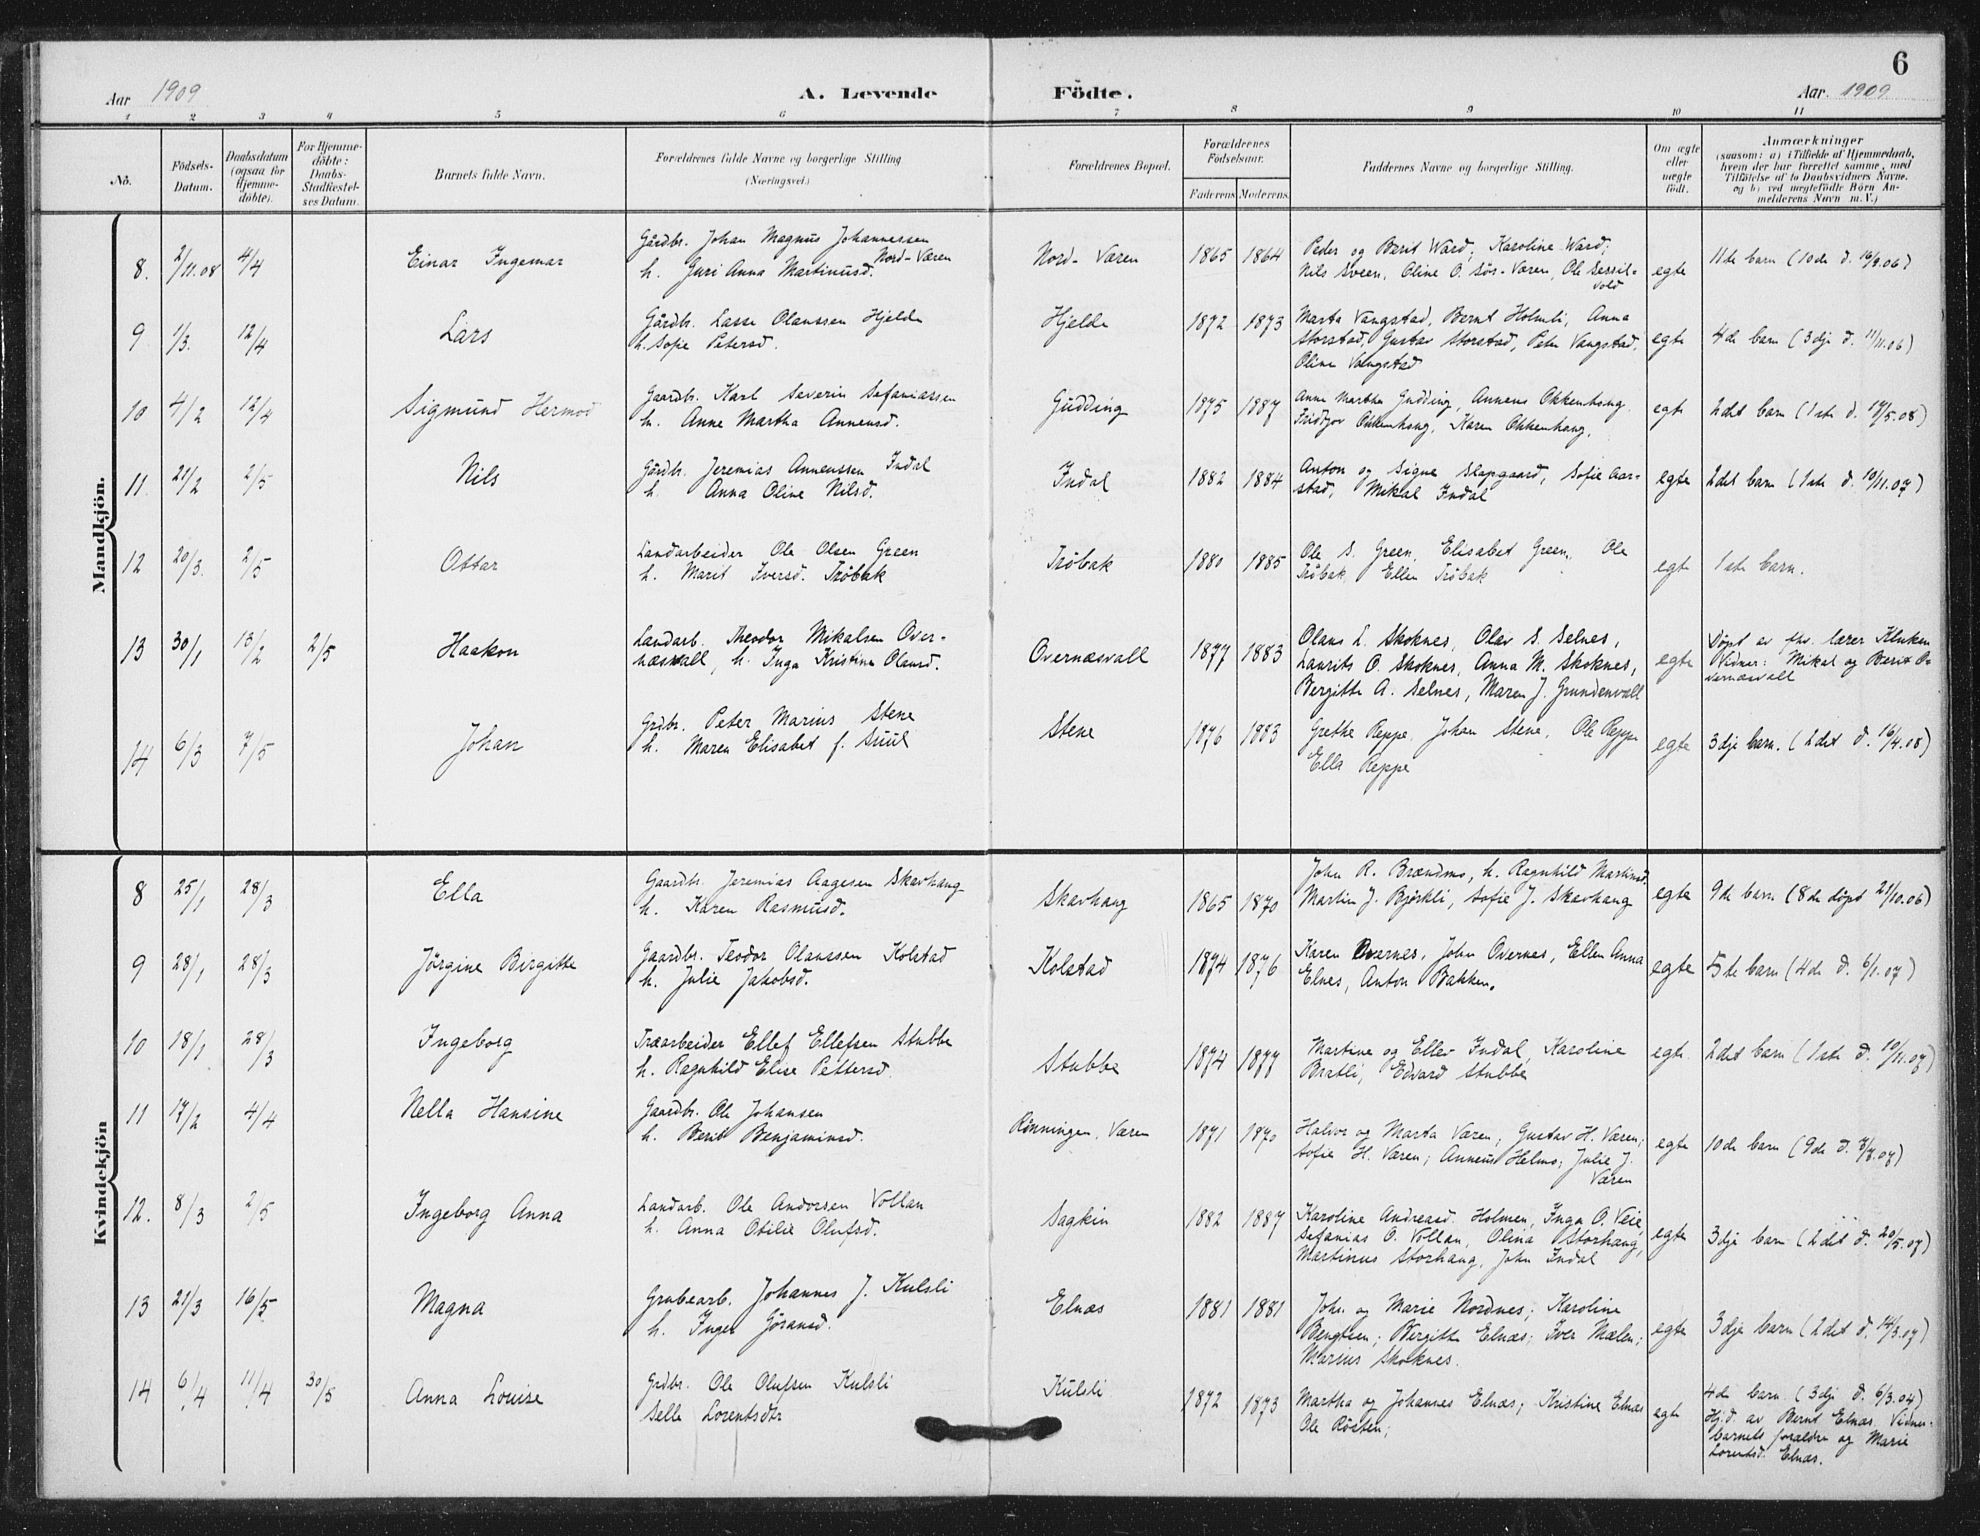 6
Aar 1909 A. Levende Födte. Aar. 1909
1 2 3 4 5 6 7 8 9 10 11
Nô. Födsels-Datum. Daabsdatum (ogsaa for Hjemme-döbte). For Hjemme-döbte: Daabs-Stadfæstel-ses Datum. Barnets fulde Navn. Forældrenes fulde Navne og borgerlige Stilling (Næringsvei.) Forældrenes Bopæl. Forældrenes Födselsaar. Faderens Moderens Faddernes Navne og borgerlige Stilling. Om ægte eller uægte födt. Anmærkninger (saasom: a) i Tilfælde af Hjemmedaab, hvem der har forrettet samme, med Tilföielse af to Daabsvidners Navne, og b) ved uægtefödte Börn An-melderens Navn m. V.)
Mandkjön.
8. 2/11.08 4/4 Einar Ingemar Gårdbr. Johan Magnus Johannessen Nord-Væren
h. Guri Anna Martinusd. Nord-Væren 1865 1864 Peder og Berit Ward; Karoline Ward;
Nils Sveen, Oline O. Sör-Væren, Ole Sessil-
vold egte 11te barn (10de d. 16/9.06)
9 1/3. 12/4 Lars Gårdbr. Lasse Olaussen Hjelde
h. Sofie Petersd. Hjelde 1872 1873 Marta Vangstad, Bernt Holmli, Anna
Storstad, Gustav Storstad, Peter Vangstad,
Oline Vangstad egte 4de barn (3dje d. 11/11.06)
10 4/2 12/4 Sigmund Hermod Gaardbr. Karl Severin Sefaniassen
h. Anne Martha Anneusd. Gudding 1875 1887 Anne Martha Gudding, Annæus Okkenhaug,
Fridtjov Okkenhaug, Karen Okkenhaug. egte 2det barn (1ste d. 17/5.08)
11. 21/2 2/5 Nils Gårdbr. Jeremias Anneussen Indal
h. Anna Oline Nilsd. Indal 1882 1884 Anton og Signe Slapgaard, Sofie Aar-
stad, Mikal Indal egte 2det barn (1ste d. 10/11.07)
12 20/3. 2/5 Ottar Landarbeider Ole Olsen Green
h. Marit Iversd. Tröbak Tröbak 1880 1885 Ole S. Green, Elisabet Green, Ole
Tröbak, Ellen Tröbak egte 1ste barn.
13 30/1 13/2 2/5 Haakon Landarb. Theodor Mikalsen Over-
næsvall, h. Inga Kristine Olausd. Overnæsvall 1877 1883 Olaus L. Skoknes, Olav S. Selnes,
Laurits O. Skoknes, Anna M. Skoknes,
Bergitte A. Selnes, Maren J. Grundenvall egte Döpt av fhv. lærer Kluken
Vidner: Mikal og Berit O-
vernæsvall
14 6/3 7/5 Johan Grdbr. Peter Marius Stene
h. Maren Elisabet f. Suul Stene 1876 1883 Grethe Reppe, Johan Stene, Ole Reppe
Ella Reppe egte 3dje barn. (2det d. 16/4.08)
Kvindekjön
8 25/1 28/3 Ella Gaardbr. Jeremias Aagesen Skavhaug
h. Karen Rasmusd. Skavhaug 1865 1870 John R. Brændmo, h. Ragnhild Martinsd.
Martin J. Björkli, Sofie J. Skavhaug egte 9de barn (8de döpt 21/10.06)
9 28/1 28/3 Jörgine Birgitte Gaardbr. Teodor Olaussen Kolstad
h. Julie Jakobsd. Kolstad 1874 1876 Karen Overnes, John Overnes, Ellen Anna
Elnes, Anton Bakken. egte 5te barn (4de d. 6/1.07)
10 18/1 28/3 Ingeborg Træarbeider Ellef Ellefsen Stubbe
h. Ragnhild Elise Pettersd. Stubbe 1874 1877 Martine og Ellev Indal, Karoline
Bratli, Edvard Stubbe egte. 2det barn (1ste d. 10/11.07)
11 17/2 4/4 Nella Hansine Gaardbr. Ole Johansen
h. Berit Benjaminsd. Rönningen, Væren 1871 1870 Halvor og Marta Væren; Gustav H. Væren;
Sofie H. Væren; Anneus Helmo; Julie J.
Væren egte 10de barn (9de d. 7/7.07)
12. 8/3 2/5 Ingeborg Anna Landarb. Ole Andorsen Vollan
h. Anna Otilie Olufsd. Sagkin 1882 1887 Karoline Andreasd. Holmen, Inga O. Veie,
Sefanias O. Vollan, Olina Storhaug,
Martinus Storhaug, John Indal egte 3dje barn (2det d. 20/5.07)
13 21/3 16/5 Magna Grubearb. Johannes J. Kulsli
h. Inger Göransd. Elnæs 1881 1881 Johs. og Marie Nordnes; Karoline
Bengtsen; Bergitte Elnæs; Iver Mælen;
Marius Skoknes. egte 3dje barn (2det d. 14/3.07)
14 6/4 11/4 30/5 Anna Louise Grdbr. Ole Olufsen Kulsli
Selle Lorentsdtr Kulsli 1872 1873 Martha og Johannes Elnæs; Kristine Elnæs
Ole Rösten; egte 4de barn (3dje d. 6/3.04)
Hj.d. av Bernt Elnæs. Vidner-
barnets forældre og Marie
Lorentsd. Elnæs.